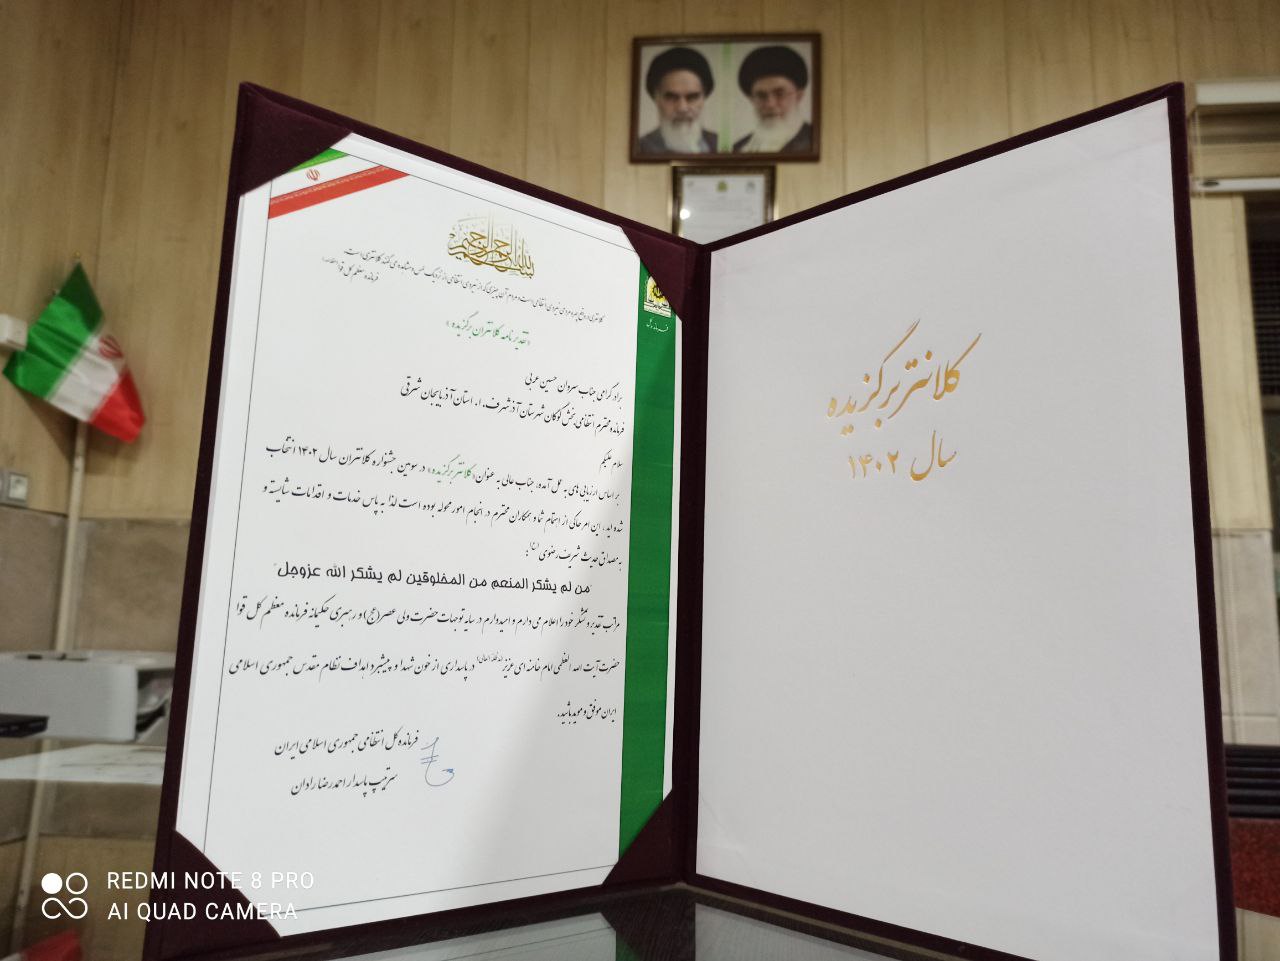 بسم الله الرحمن الرحیم
فرمانده معظم کل قوا
«تقدیر نامه کلانتران برگزیده»
برادر گرامی جناب سروان حسین عربی
فرمانده محترم انتظامی بخش گوگان شهرستان آذرشهر ف.ا. استان آذربایجان شرقی
سلام علیکم
بر اساس ارزیابی های به عمل آمده، جناب عالی به عنوان «کلانتر برگزیده» در سومین جشنواره کلانتران سال ۱۴۰۲ انتخاب
شده اید، این امر حاکی از اهتمام شما و همکاران محترم در انجام امور محوله بوده است لذا به پاس خدمات و اقدامات شایسته و
به مصداق حدیث شریف رضوی (ع):
"من لم یشکر المنعم من المخلوقین لم یشکر الله عزوجل"
مراتب تقدیر و تشکر خود را اعلام می دارم و امیدوارم در سایه توجهات حضرت ولی عصر(عج) و رهبری حکیمانه فرمانده معظم کل قوا
حضرت آیت الله العظمی امام خامنه ای عزیز (مدظله العالی) در پاسداری از خون شهدا و پیشبرد اهداف نظام مقدس جمهوری اسلامی
ایران موفق و موید باشید.
فرمانده کل انتظامی جمهوری اسلامی ایران
سرتیپ پاسدار احمدرضا رادان
کلانتر برگزیده
سال ۱۴۰۲
REDMI NOTE 8 PRO
AI QUAD CAMERA